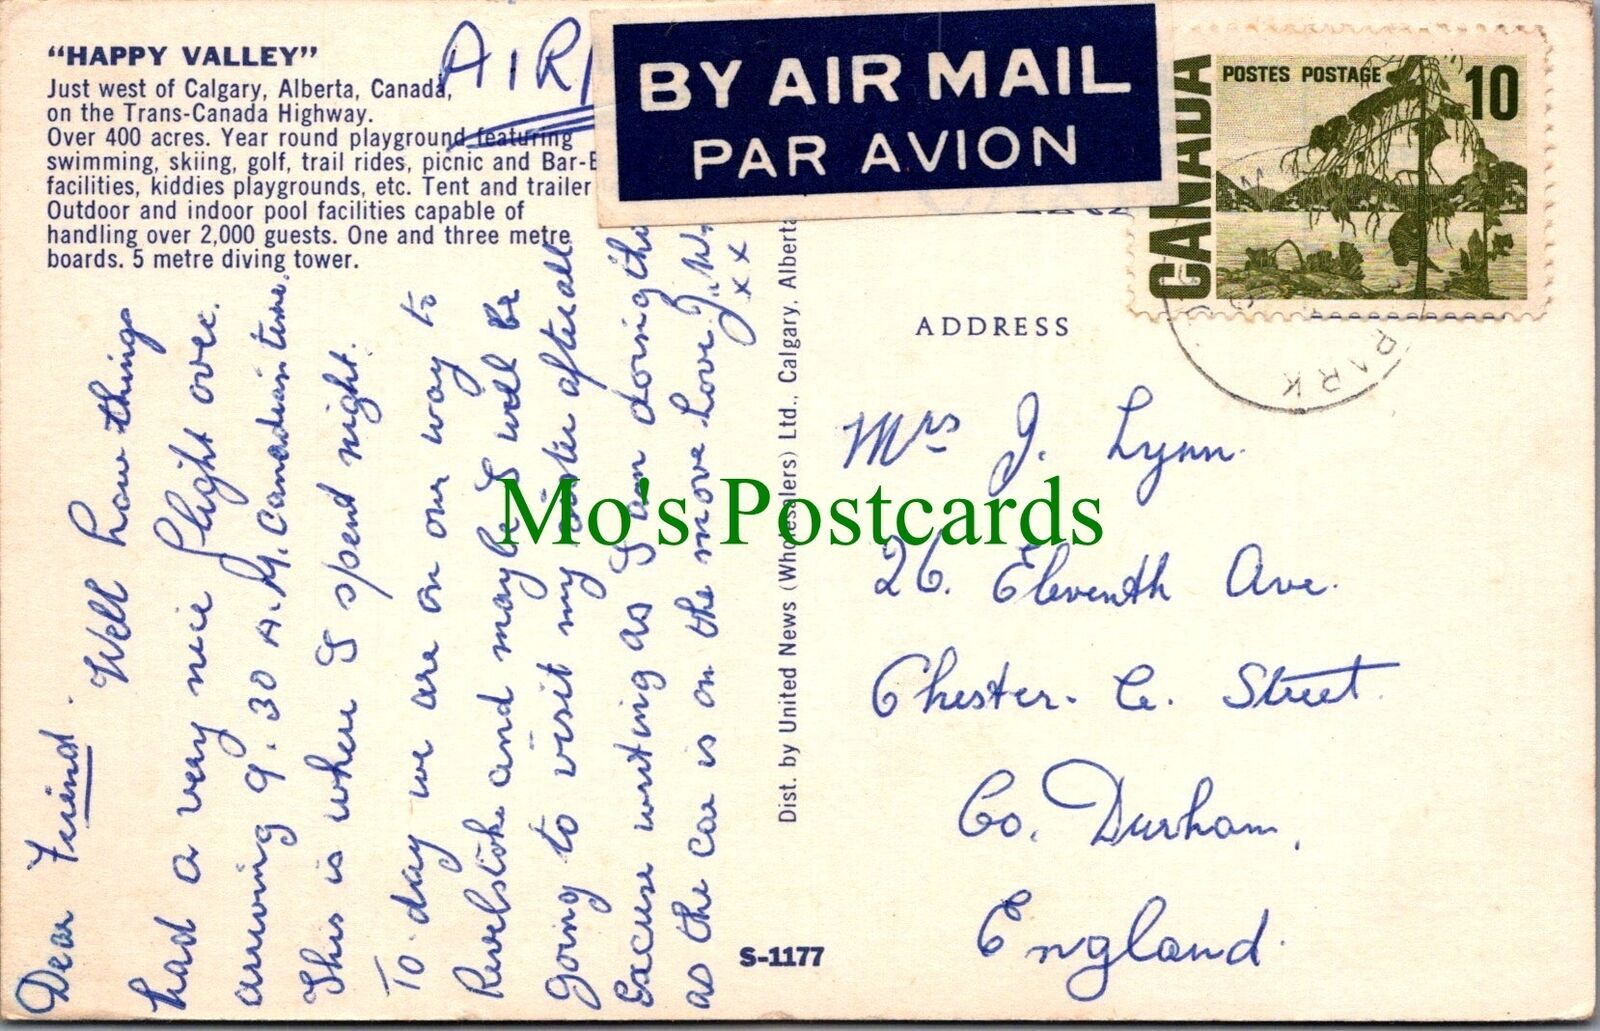 "HAPPY VALLEY"
Just west of Calgary, Alberta, Canada,
on the Trans-Canada Highway.
Over 400 acres. Year round playground featuring
swimming, skiing, golf, trail rides, picnic and Bar-B
facilities, kiddies playgrounds, etc. Tent and trailer
Outdoor and indoor pool facilities capable of
handling over 2,000 guests. One and three metre
boards. 5 metre diving tower.
AIR
BY AIR MAIL
PAR AVION
POSTES POSTAGE 10
CANADA
PARK
ADDRESS
Dear Friend. Well how things
had a very nice flight over.
arriving 9.30 A.M. Canadian time.
This is where I spent night.
To-day we are on our way to
Revelstoke and maybe I will be
going to visit my sister after all
Excuse writing as I am doing thi
as the car is on the move love J.
x x
Dist. by United News (Wholesalers) Ltd., Calgary, Alberta
S-1177
Mrs J. Lynn.
26. Eleventh Ave.
Chester-Le. Street.
Co. Durham,
England.
Mo's Postcards